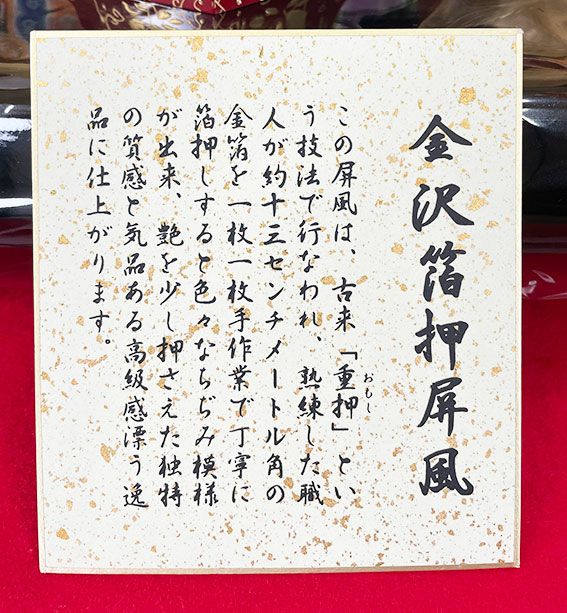 金沢箔押屏風
この屏風は、古来「重押」とい
おもし
う技法で行なわれ、熟練した職
人が約十三センチメートル角の
金箔を一枚一枚手作業で丁寧に
箔押しすると色々なちぢみ模様
が出来、艶を少し押さえた独特
の質感と気品ある高級感漂う逸
品に仕上がります。